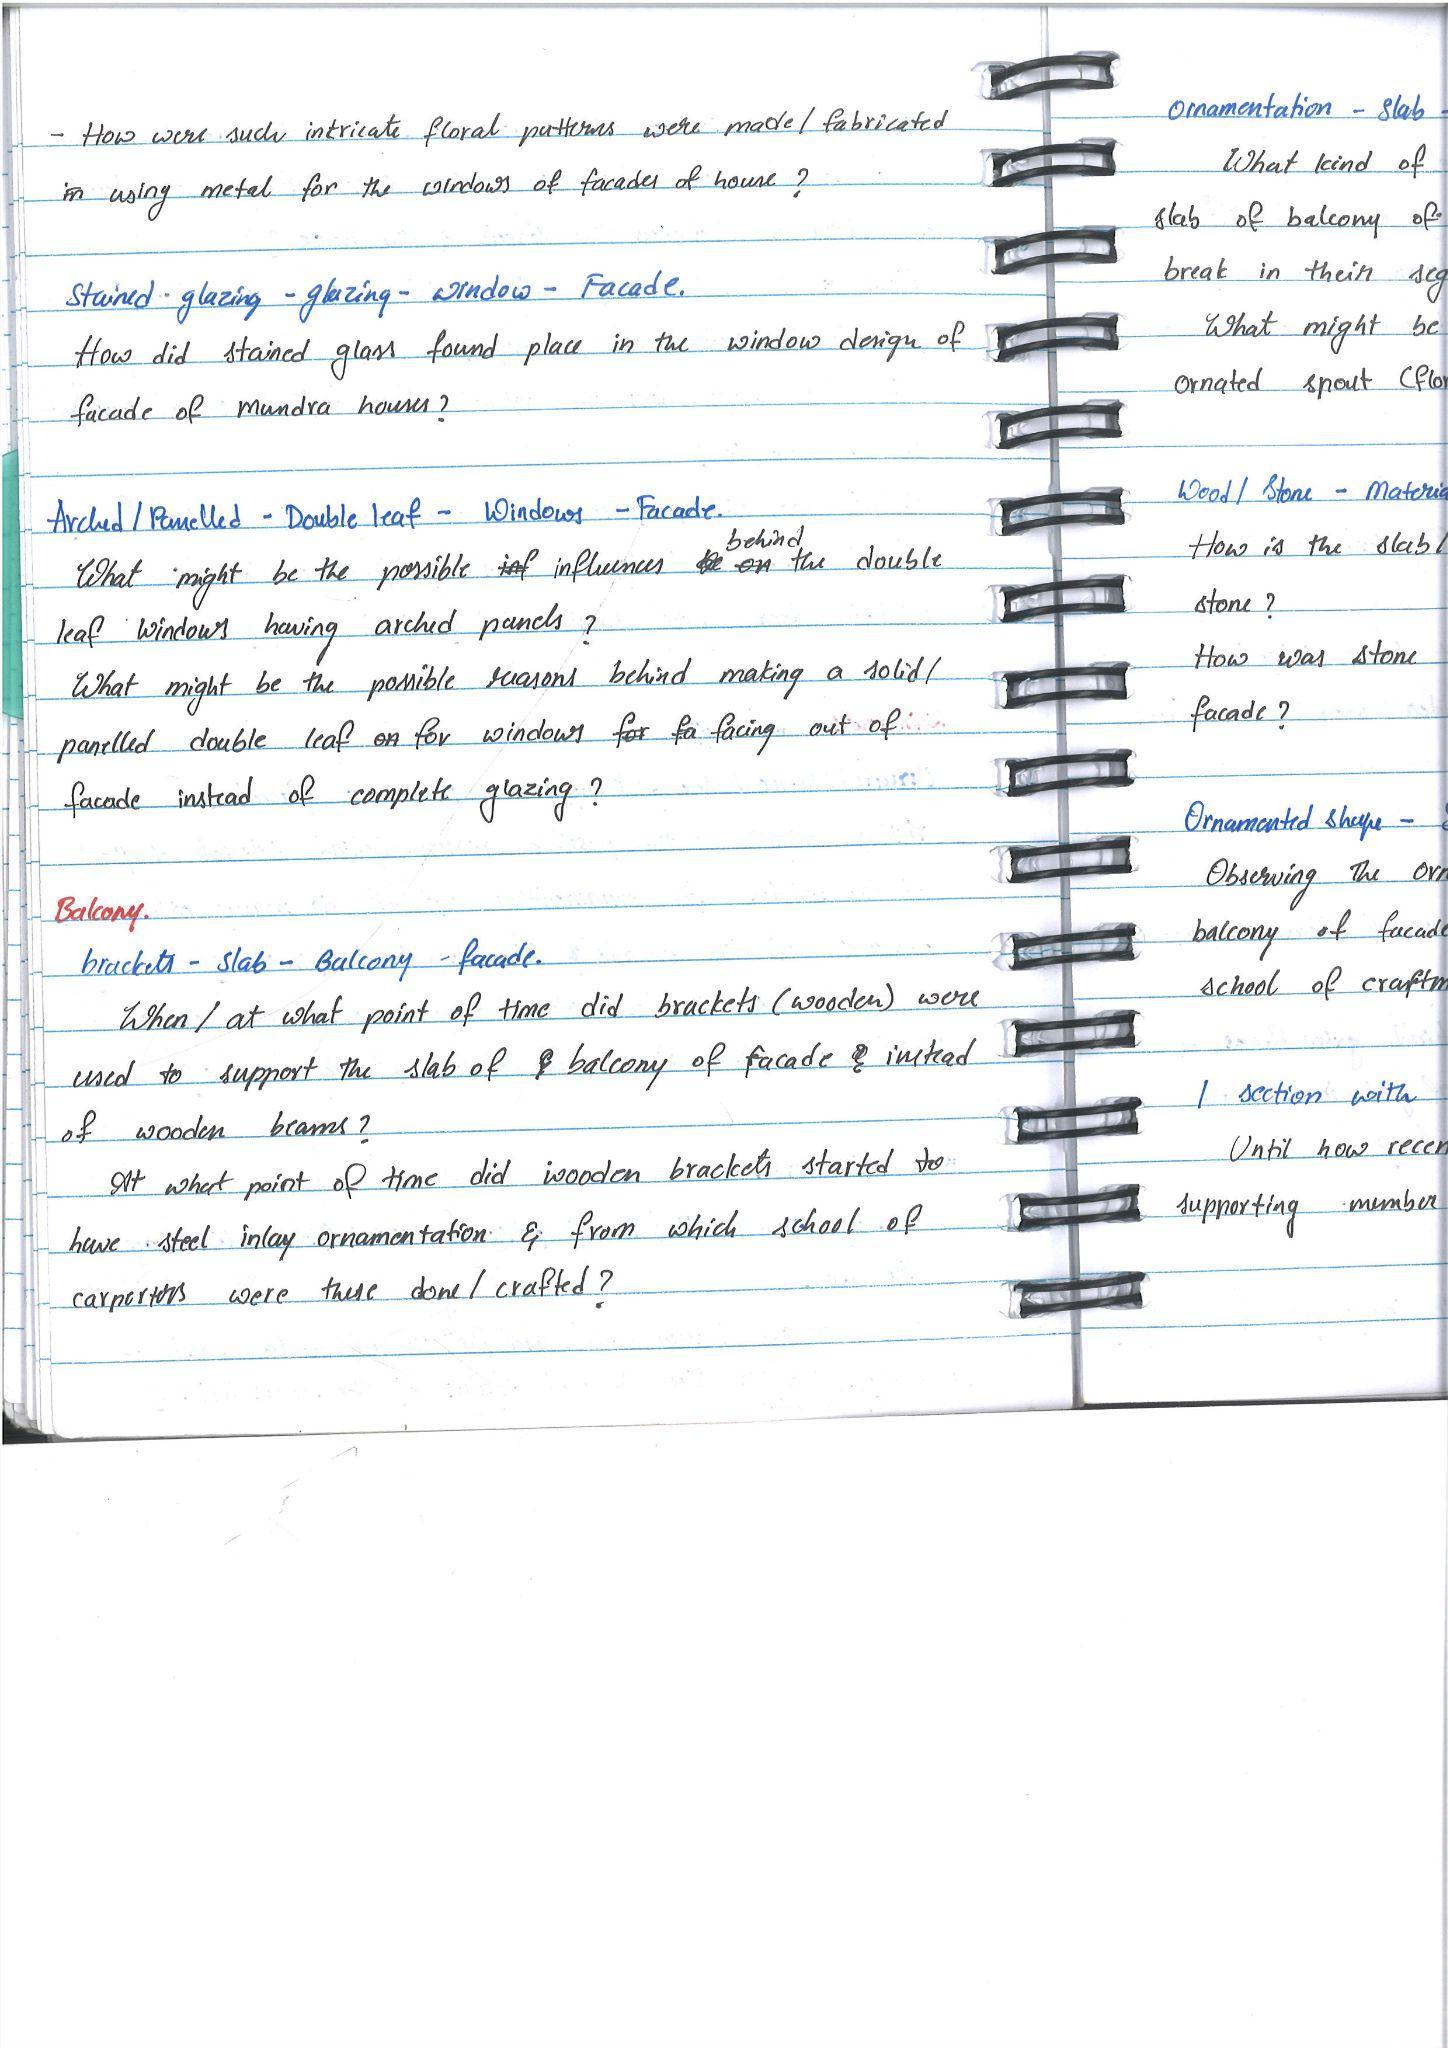 - How were such intricate floral patterns were made/fabricated
in using metal for the windows of facades of house?
Stained-glazing - glazing - window - Facade.
How did stained glass found place in the window design of
facade of mundra houses?
Arched/Panelled - Double leaf - Windows - Facade.
behind
What might be the possible inf influences be on the double
leaf windows having arched panels?
What might be the possible reasons behind making a solid/
panelled double leaf on for windows for fa facing out of
facade instead of complete glazing?
Balcony.
brackets - slab - Balcony - facade.
When/at what point of time did brackets (wooden) were
used to support the slab of balcony of facade instead
of wooden beams?
At what point of time did wooden brackets started to
have steel inlay ornamentation & from which school of
carporters were these done/crafted?
Ornamentation - Slab -
What kind of
slab of balcony of
break in their seg
What might be
ornated spout (flor
Wood/Stone - Materia
How is the slab/
stone?
How was stone
facade?
Ornamented shape -
Observing the orn
balcony of facade
school of craftm
1 section with
Until how recen
supporting member